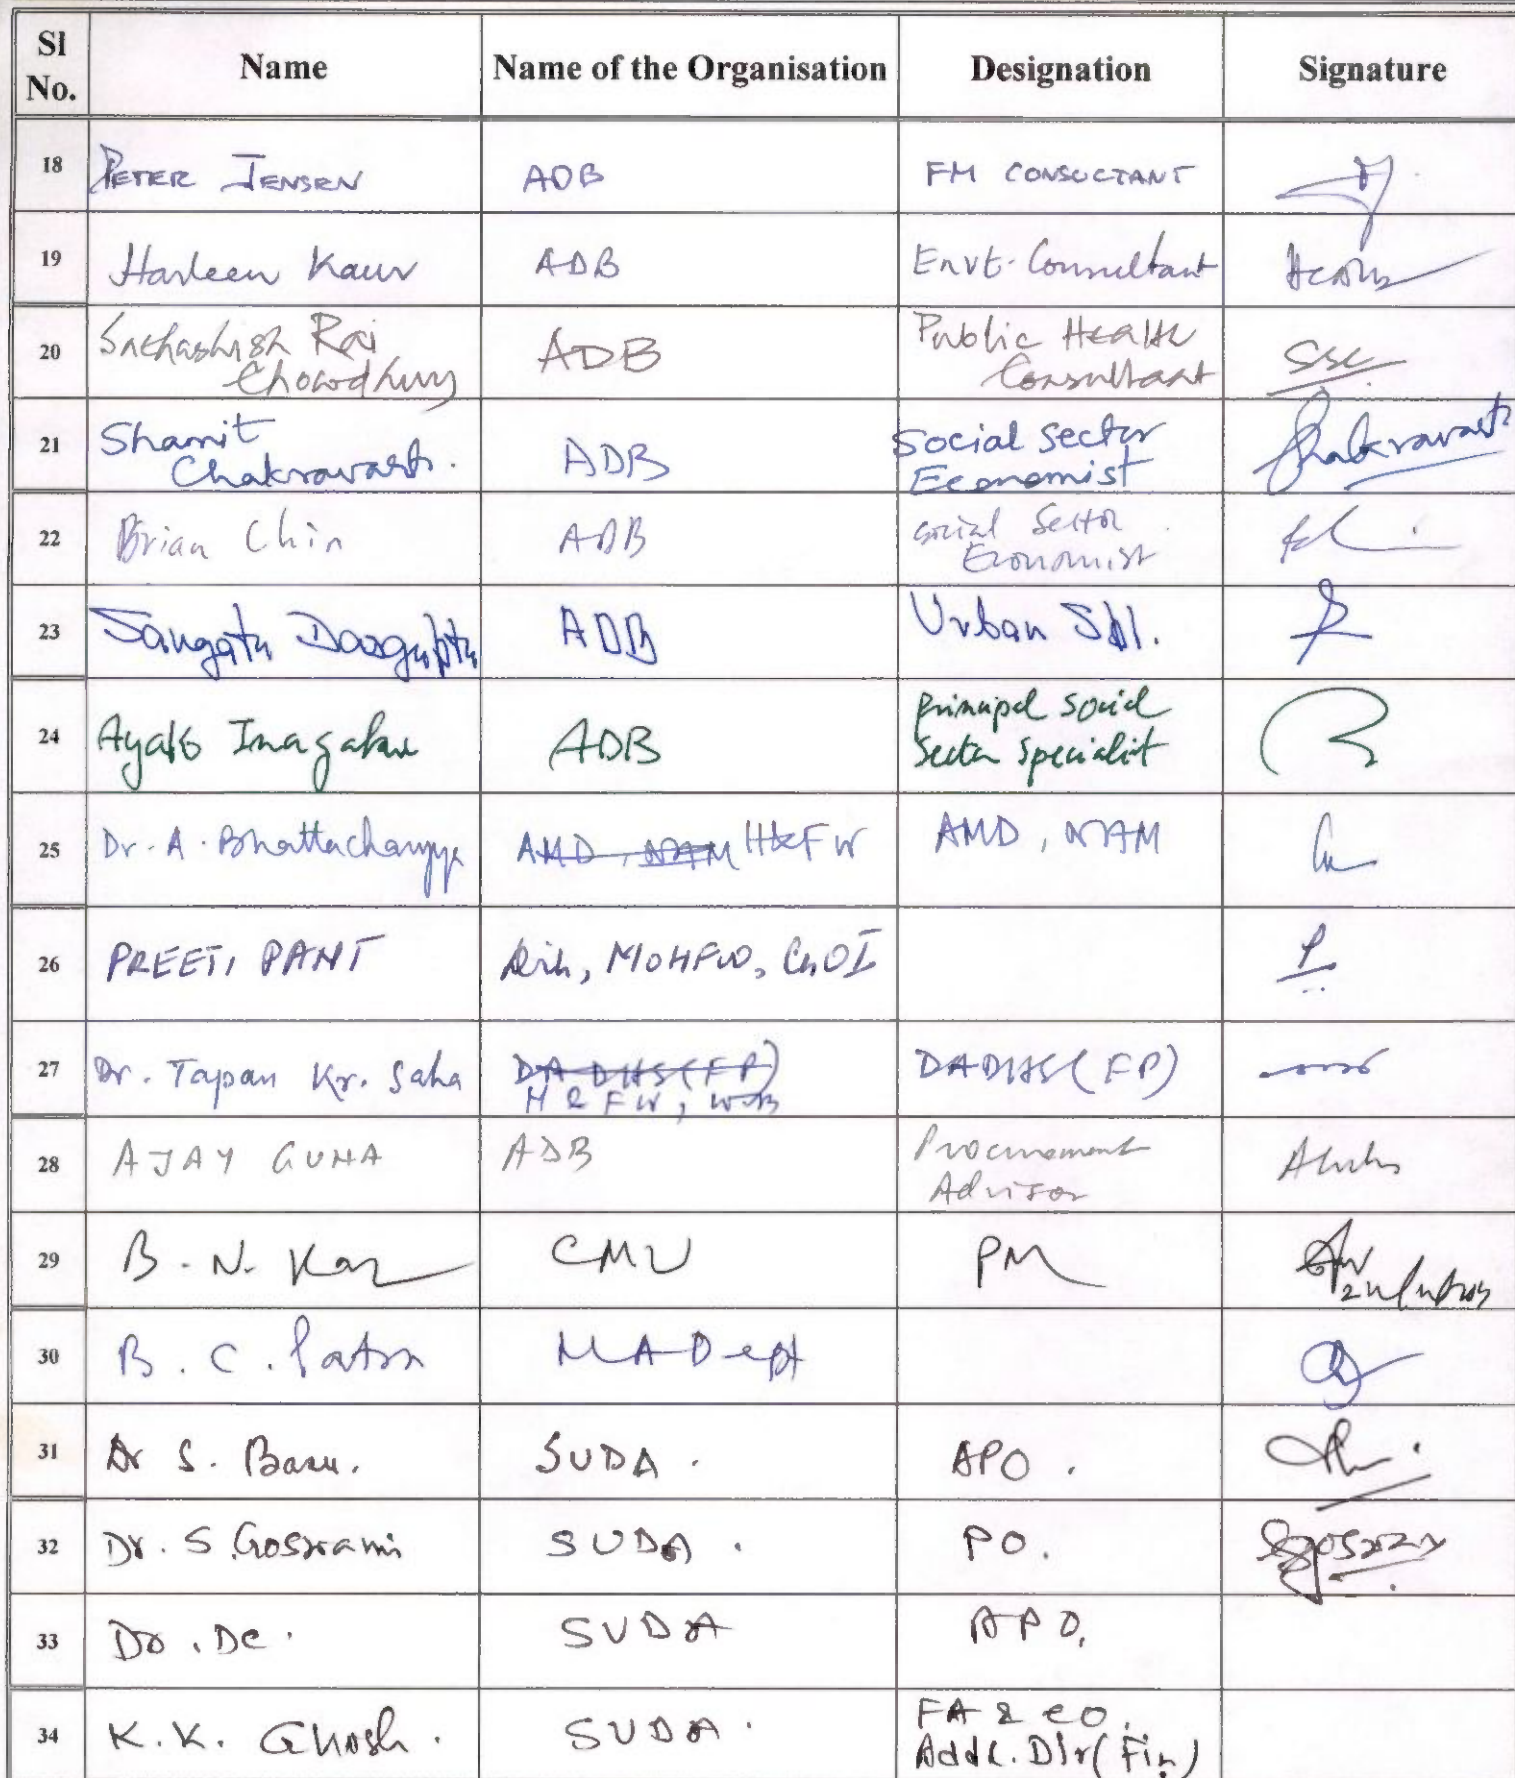 Sl No. Name Name of the Organisation Designation Signature
18 PETER JENSEN ADB FM CONSULTANT
19 Harleen Kaur ADB Envt. Consultant
20 Snehashish Rai Chowdhury ADB Public Health Consultant SSC
21 Shamit Chakravarti. ADB Social Sector Economist Chakravarti
22 Brian Chin ADB Social Sector Economist
23 Sangata Dasgupta ADB Urban Spl.
24 Ayako Inagaki ADB Principal Social Sector Specialist
25 Dr. A. Bhattacharyya AMD, NHM H&FW AMD, NHM
26 PREETI PANT Dir, MOHFW, GOI
27 Dr. Tapan Kr. Saha DADHS(FP) H & FW, WB DADHS(FP)
28 AJAY GUHA ADB Procurement Advisor
29 B. N. Kar CMU PM
30 B. C. Patra MA Dept
31 Dr S. Basu. SUDA. APO.
32 Dr. S. Goswami SUDA. PO. Sgoswami
33 Do. De. SUDA APO.
34 K.K. Ghosh. SUDA. FA & CO, Addl. Dir(Fin)